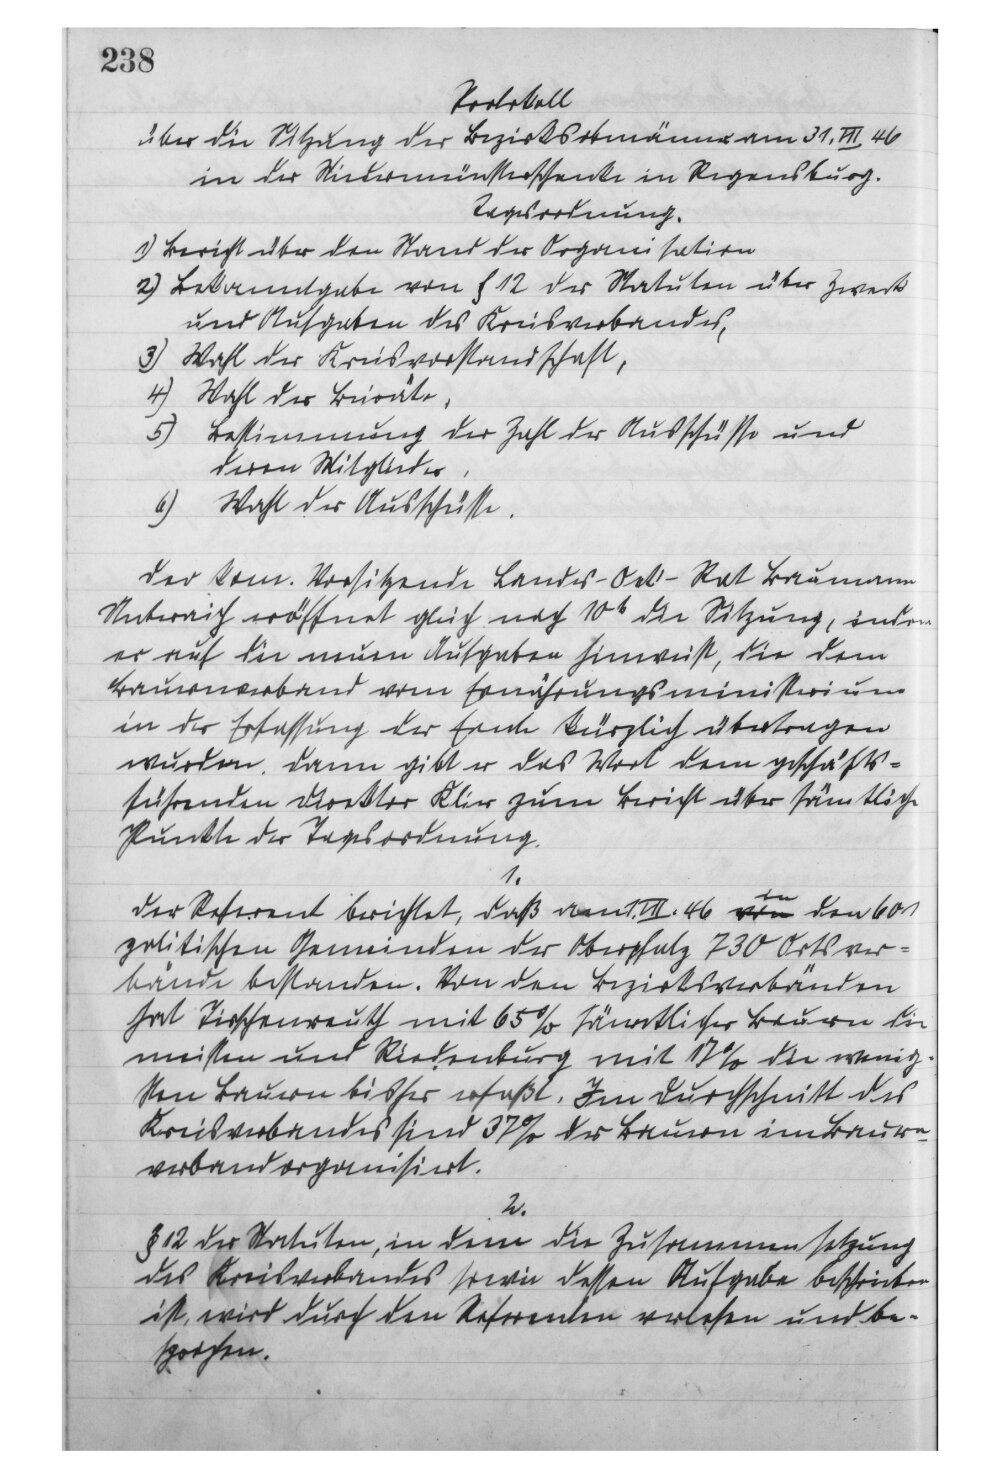 238
Protokoll
über die Sitzung der Bezirksobmänner am 31. VII. 46
in der Niedermünsterschenke in Regensburg.
Tagesordnung.
1) Bericht über den Stand der Organisation
2) Bekanntgabe von § 12 der Statuten über Zweck
und Aufgaben des Kreisverbandes,
3) Wahl der Kreisvorstandschaft,
4) Wahl der Beiräte,
5) Bestimmung der Zahl der Ausschüsse und
deren Mitglieder,
6) Wahl der Ausschüsse.
Der kom. Vorsitzende Landes-Oek-Rat Baumann
eröffnet gleich nach 10 h die Sitzung, indem
er auf die neuen Aufgaben hinweist, die dem
Bauernverband vom Ernährungsministerium
in der Erfassung der Ernte kürzlich übertragen
wurden. Dann gibt er das Wort dem geschäfts=
führenden Direktor Klier zum Bericht über sämtliche
Punkte der Tagesordnung.
1.
Der Referent berichtet, daß am 1. VII. 46 in den 601
politischen Gemeinden der Oberpfalz 730 Ortsver=
bände bestanden. Von den Bezirksverbänden
hat Tirschenreuth mit 65% sämtlicher Bauern die
meisten und Riedenburg mit 17% die wenig-
sten Bauern bisher erfaßt. Im Durchschnitt des
Kreisverbandes sind 37% der Bauern im Bauern-
verband organisiert.
2.
§ 12 der Statuten, in dem die Zusammensetzung
des Kreisverbandes sowie dessen Aufgabe beschrieben
ist, wird durch den Referenten verlesen und be-
sprochen.